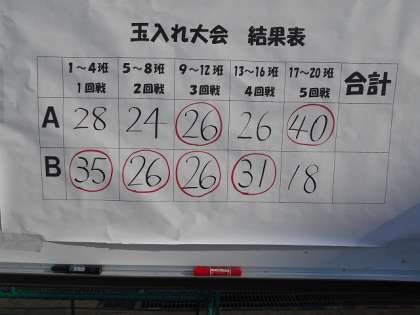 玉入れ大会 結果表
1～4班 5～8班 9～12班 13～16班 17～20班 合計
1回戦 2回戦 3回戦 4回戦 5回戦
A 28 24 26 26 40
B 35 26 26 31 18